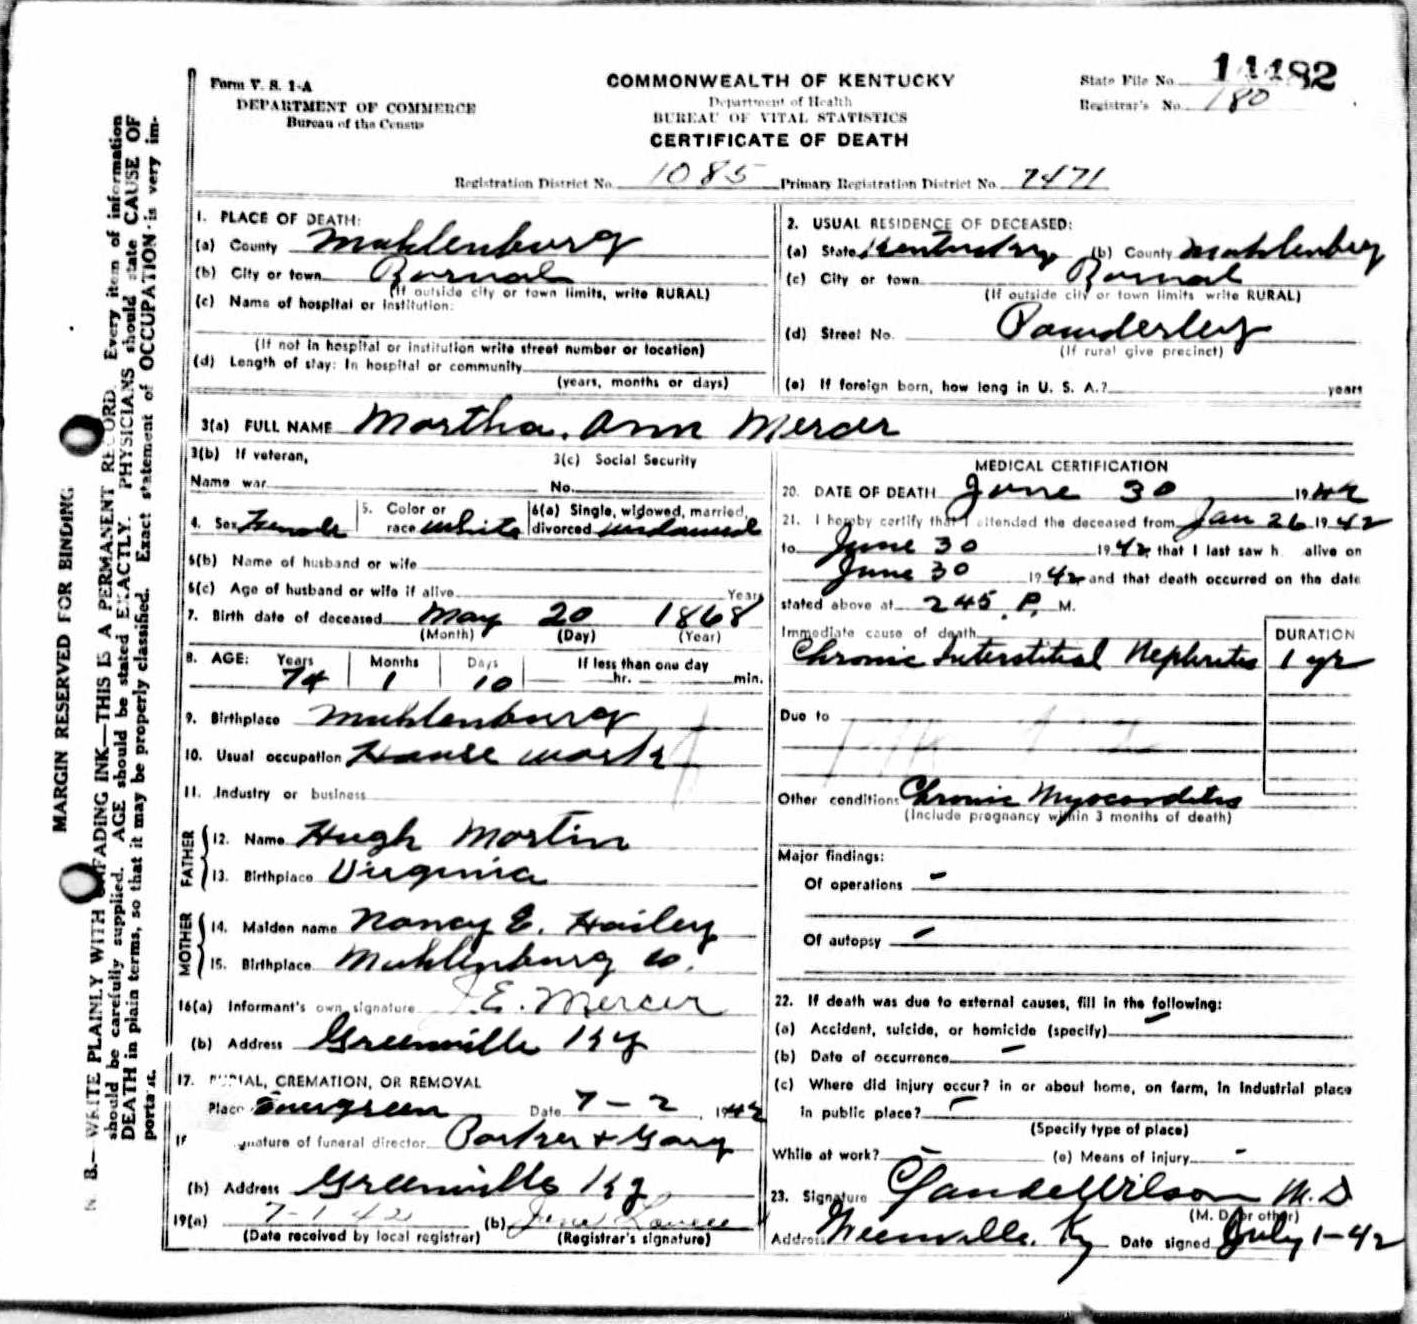 Form V. S. 1-A
DEPARTMENT OF COMMERCE
Bureau of the Census
COMMONWEALTH OF KENTUCKY
Department of Health
BUREAU OF VITAL STATISTICS
CERTIFICATE OF DEATH
State File No. 11482
Registrar's No. 180
Registration District No. 1085 Primary Registration District No. 7471
MARGIN RESERVED FOR BINDING
N. B.—WRITE PLAINLY WITH UNFADING INK—THIS IS A PERMANENT RECORD. Every item of information
should be carefully supplied. AGE should be stated EXACTLY. PHYSICIANS should state CAUSE OF
DEATH in plain terms, so that it may be properly classified. Exact statement of OCCUPATION is very im-
portant.
1. PLACE OF DEATH:
(a) County Muhlenburg
(b) City or town
(If outside city or town limits, write RURAL)
(c) Name of hospital or institution:
(If not in hospital or institution write street number or location)
(d) Length of stay: In hospital or community
(years, months or days)
2. USUAL RESIDENCE OF DECEASED:
(a) State Kentucky (b) County Muhlenburg
(c) City or town
(If outside city or town limits write RURAL)
(d) Street No.
(If rural give precinct)
(e) If foreign born, how long in U. S. A.? years
3(a) FULL NAME Martha Ann Mercer
3(b) If veteran,
Name war
3(c) Social Security
No.
4. Sex Female 5. Color or race White 6(a) Single, widowed, married, divorced widowed
6(b) Name of husband or wife
6(c) Age of husband or wife if alive Years
7. Birth date of deceased May 20 1868
(Month) (Day) (Year)
8. AGE: Years Months Days If less than one day
74 1 10 hr. min.
9. Birthplace Muhlenburg
10. Usual occupation House work
11. Industry or business
FATHER
12. Name Hugh Martin
13. Birthplace Virginia
MOTHER
14. Maiden name Nancy E. Hailey
15. Birthplace Muhlenburg Co.
16(a) Informant's own signature J. E. Mercer
(b) Address Greenville Ky
17. BURIAL, CREMATION, OR REMOVAL
Place Evergreen Date 7-2, 1942
signature of funeral director Parker & Gary
(b) Address Greenville Ky
19(a) 7-1-42 (b)
(Date received by local registrar) (Registrar's signature)
MEDICAL CERTIFICATION
20. DATE OF DEATH June 30 1942
21. I hereby certify that I attended the deceased from Jan 26 1942
to June 30 1942 that I last saw h alive on
June 30 1942 and that death occurred on the date
stated above at 245 P. M.
Immediate cause of death DURATION
Chronic Interstitial Nephritis 1 yr
Due to
Other conditions Chronic Myocarditis
(Include pregnancy within 3 months of death)
Major findings:
Of operations -
Of autopsy -
22. If death was due to external causes, fill in the following:
(a) Accident, suicide, or homicide (specify) -
(b) Date of occurrence -
(c) Where did injury occur? in or about home, on farm, in industrial place
in public place? -
(Specify type of place)
While at work? - (e) Means of injury -
23. Signature Claude Wilson M. D
(M. D. or other)
Address Greenville, Ky Date signed July 1-42